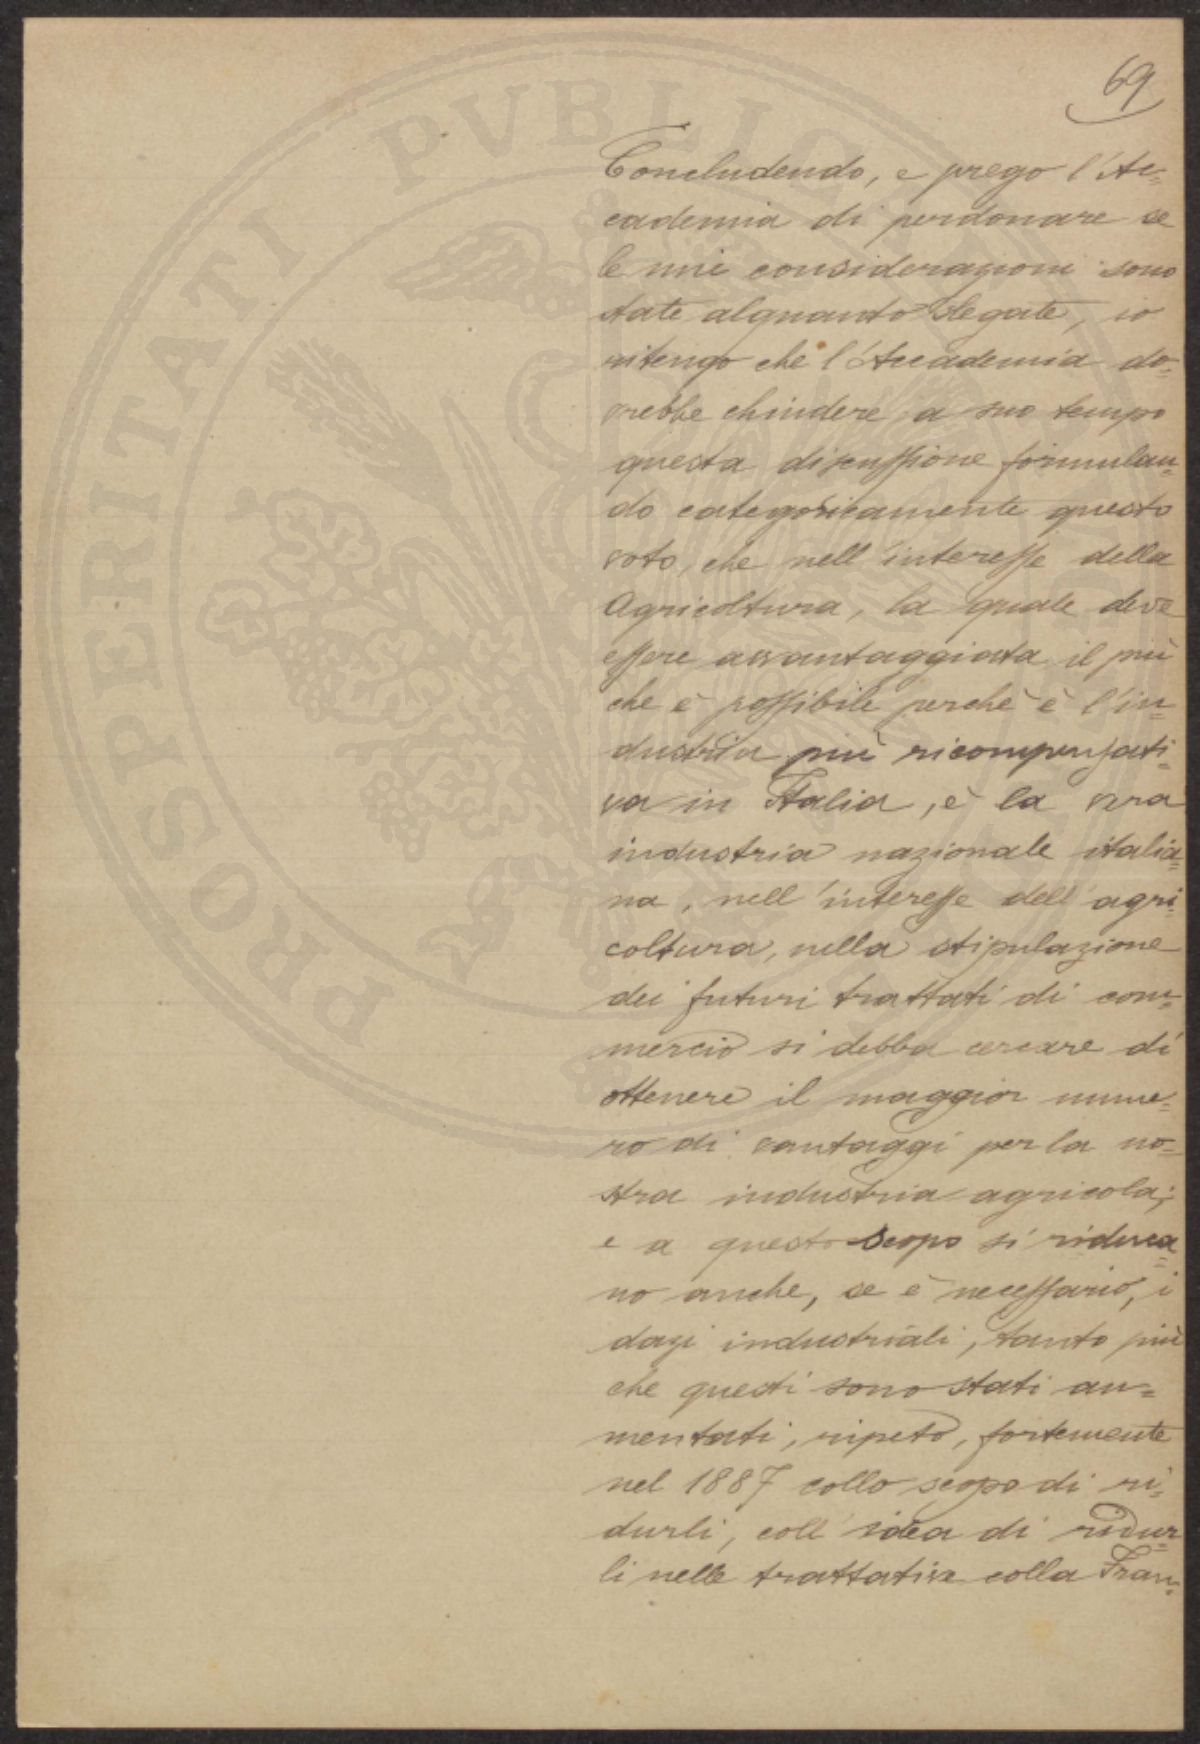 69
Concludendo, e prego l'Ac=
cademia di perdonare se
le mie considerazioni sono
state alquanto slegate, io
ritengo che l'Accademia do=
vrebbe chiudere a suo tempo
questa discussione formulan=
do categoricamente questo
voto, che nell'interesse della
Agricoltura, la quale deve
essere avvantaggiata il più
che è possibile perchè è l'in=
dustria più ricompensati=
va in Italia, è la vera
industria nazionale italia=
na, nell'interesse dell'agri=
coltura, nella stipulazione
dei futuri trattati di com=
mercio si debba cercare di
ottenere il maggior nume=
ro di vantaggi per la no=
stra industria agricola;
e a questo scopo si riduca=
no anche, se è necessario, i
dazi industriali, tanto più
che questi sono stati au=
mentati, ripeto, fortemente
nel 1887 collo scopo di ri=
durli, coll'idea di ridur=
li nelle trattative colla Fran=
PROSPERITATI PVBLIC